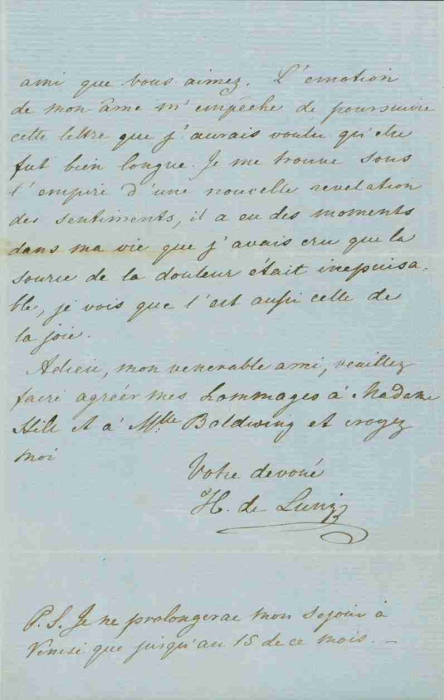 ami que vous aimez. L'emotion
de mon âme m'empeche de poursuivre
cette lettre que j'aurais voulu qu'elle
fut bien longue. Je me trouve sous
l'empire d'une nouvelle revelation
des sentiments, il a eu des moments
dans ma vie que j'avais cru que la
source de la douleur était inepuisa-
ble, je vois que l'est aussi celle de
la joie.
Adieu, mon venerable ami, veuillez
faire agréer mes hommages à Madame
Hill et à Mlle Baldwing et croyez
moi
Votre devoué
H. de
P. S. Je ne prolongerae mon sejour à
Venise que jusqu'au 15 de ce mois. —